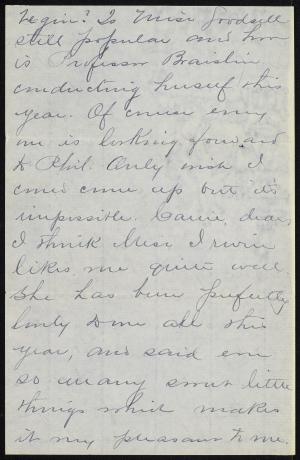 begin? Is Miss Goodsell
still popular and how
is Professor Braislin
conducting herself this
year. Of course every
one is looking forward
to Phil. Only wish I
could come up but it's
impossible. Carrie, dear,
I think Miss Irwin
likes me quite well.
She has been perfectly
lovely to me all this
year, and said
so many sweet little
things which makes
it very pleasant to me.